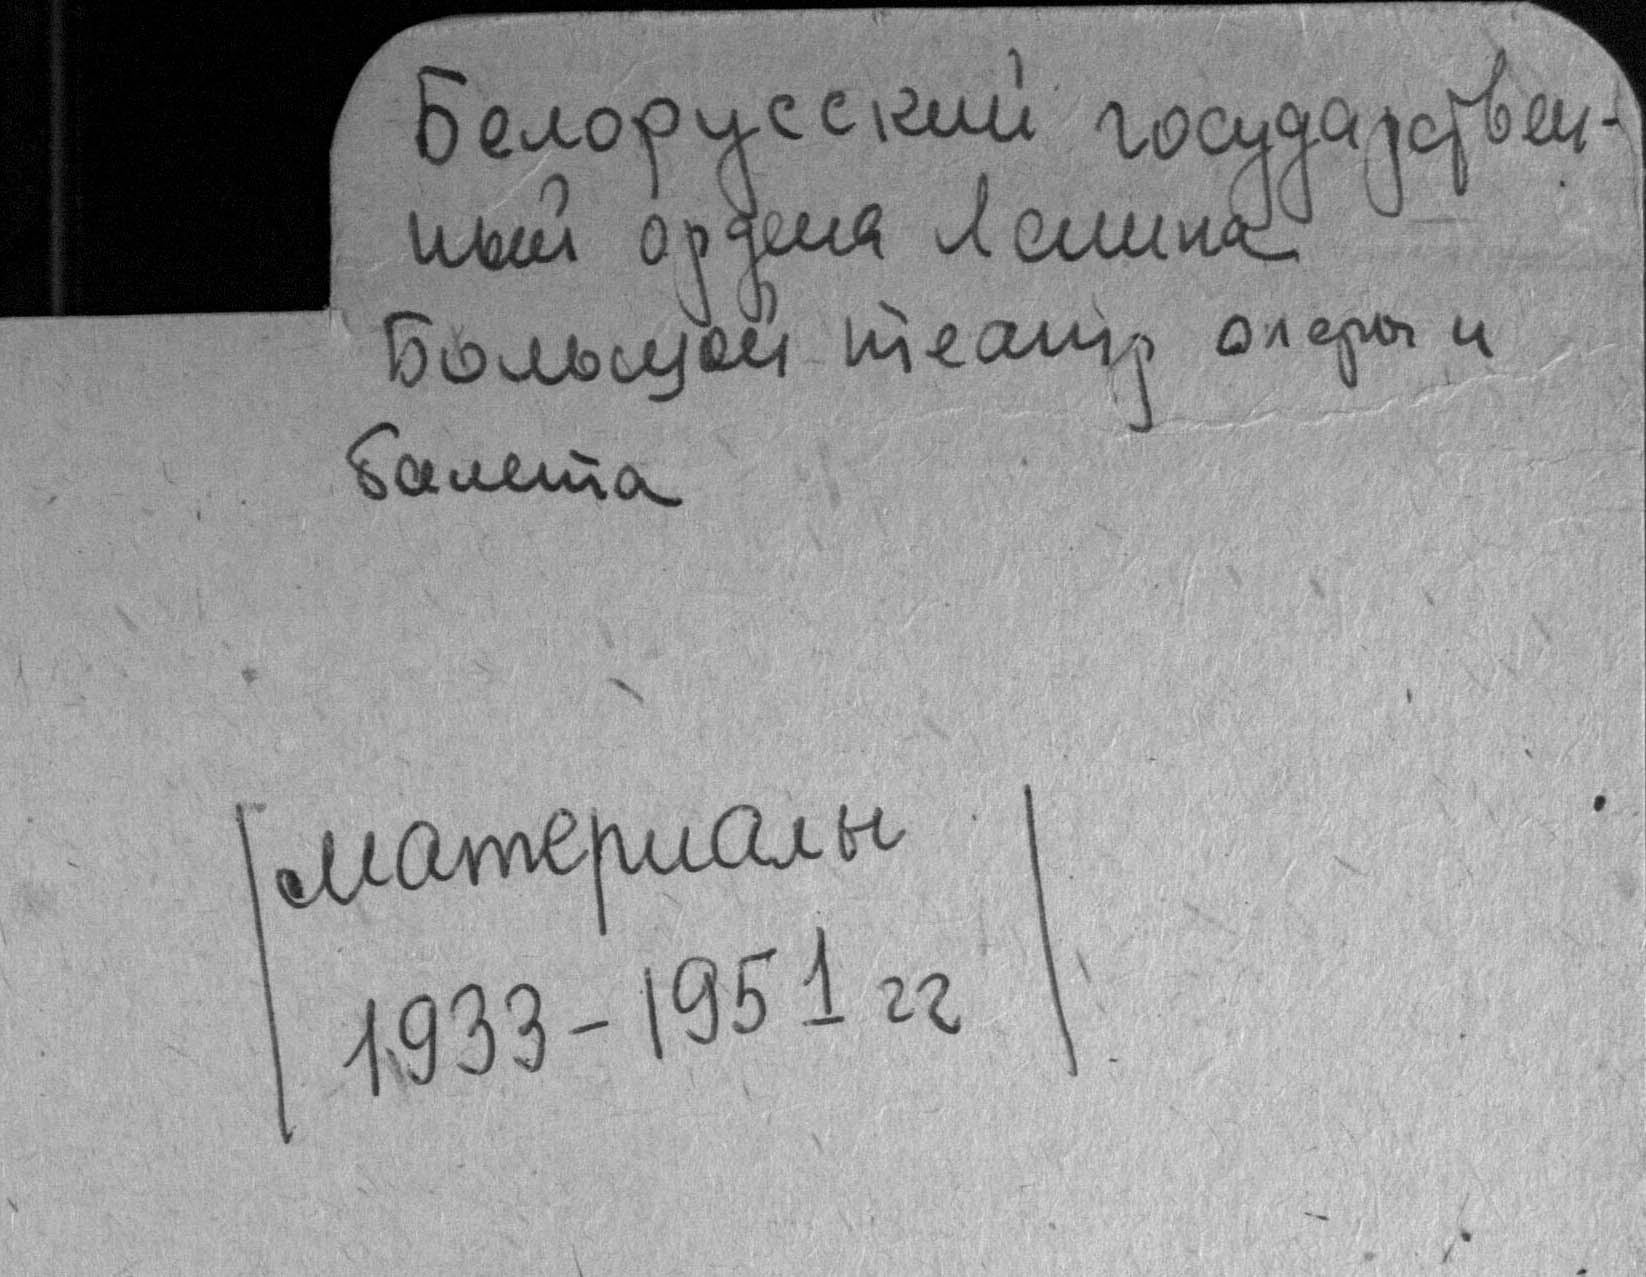 Белорусский государствен-
ный ордена Ленина
Большой театр оперы и
балета
материалы
1933-1951 гг